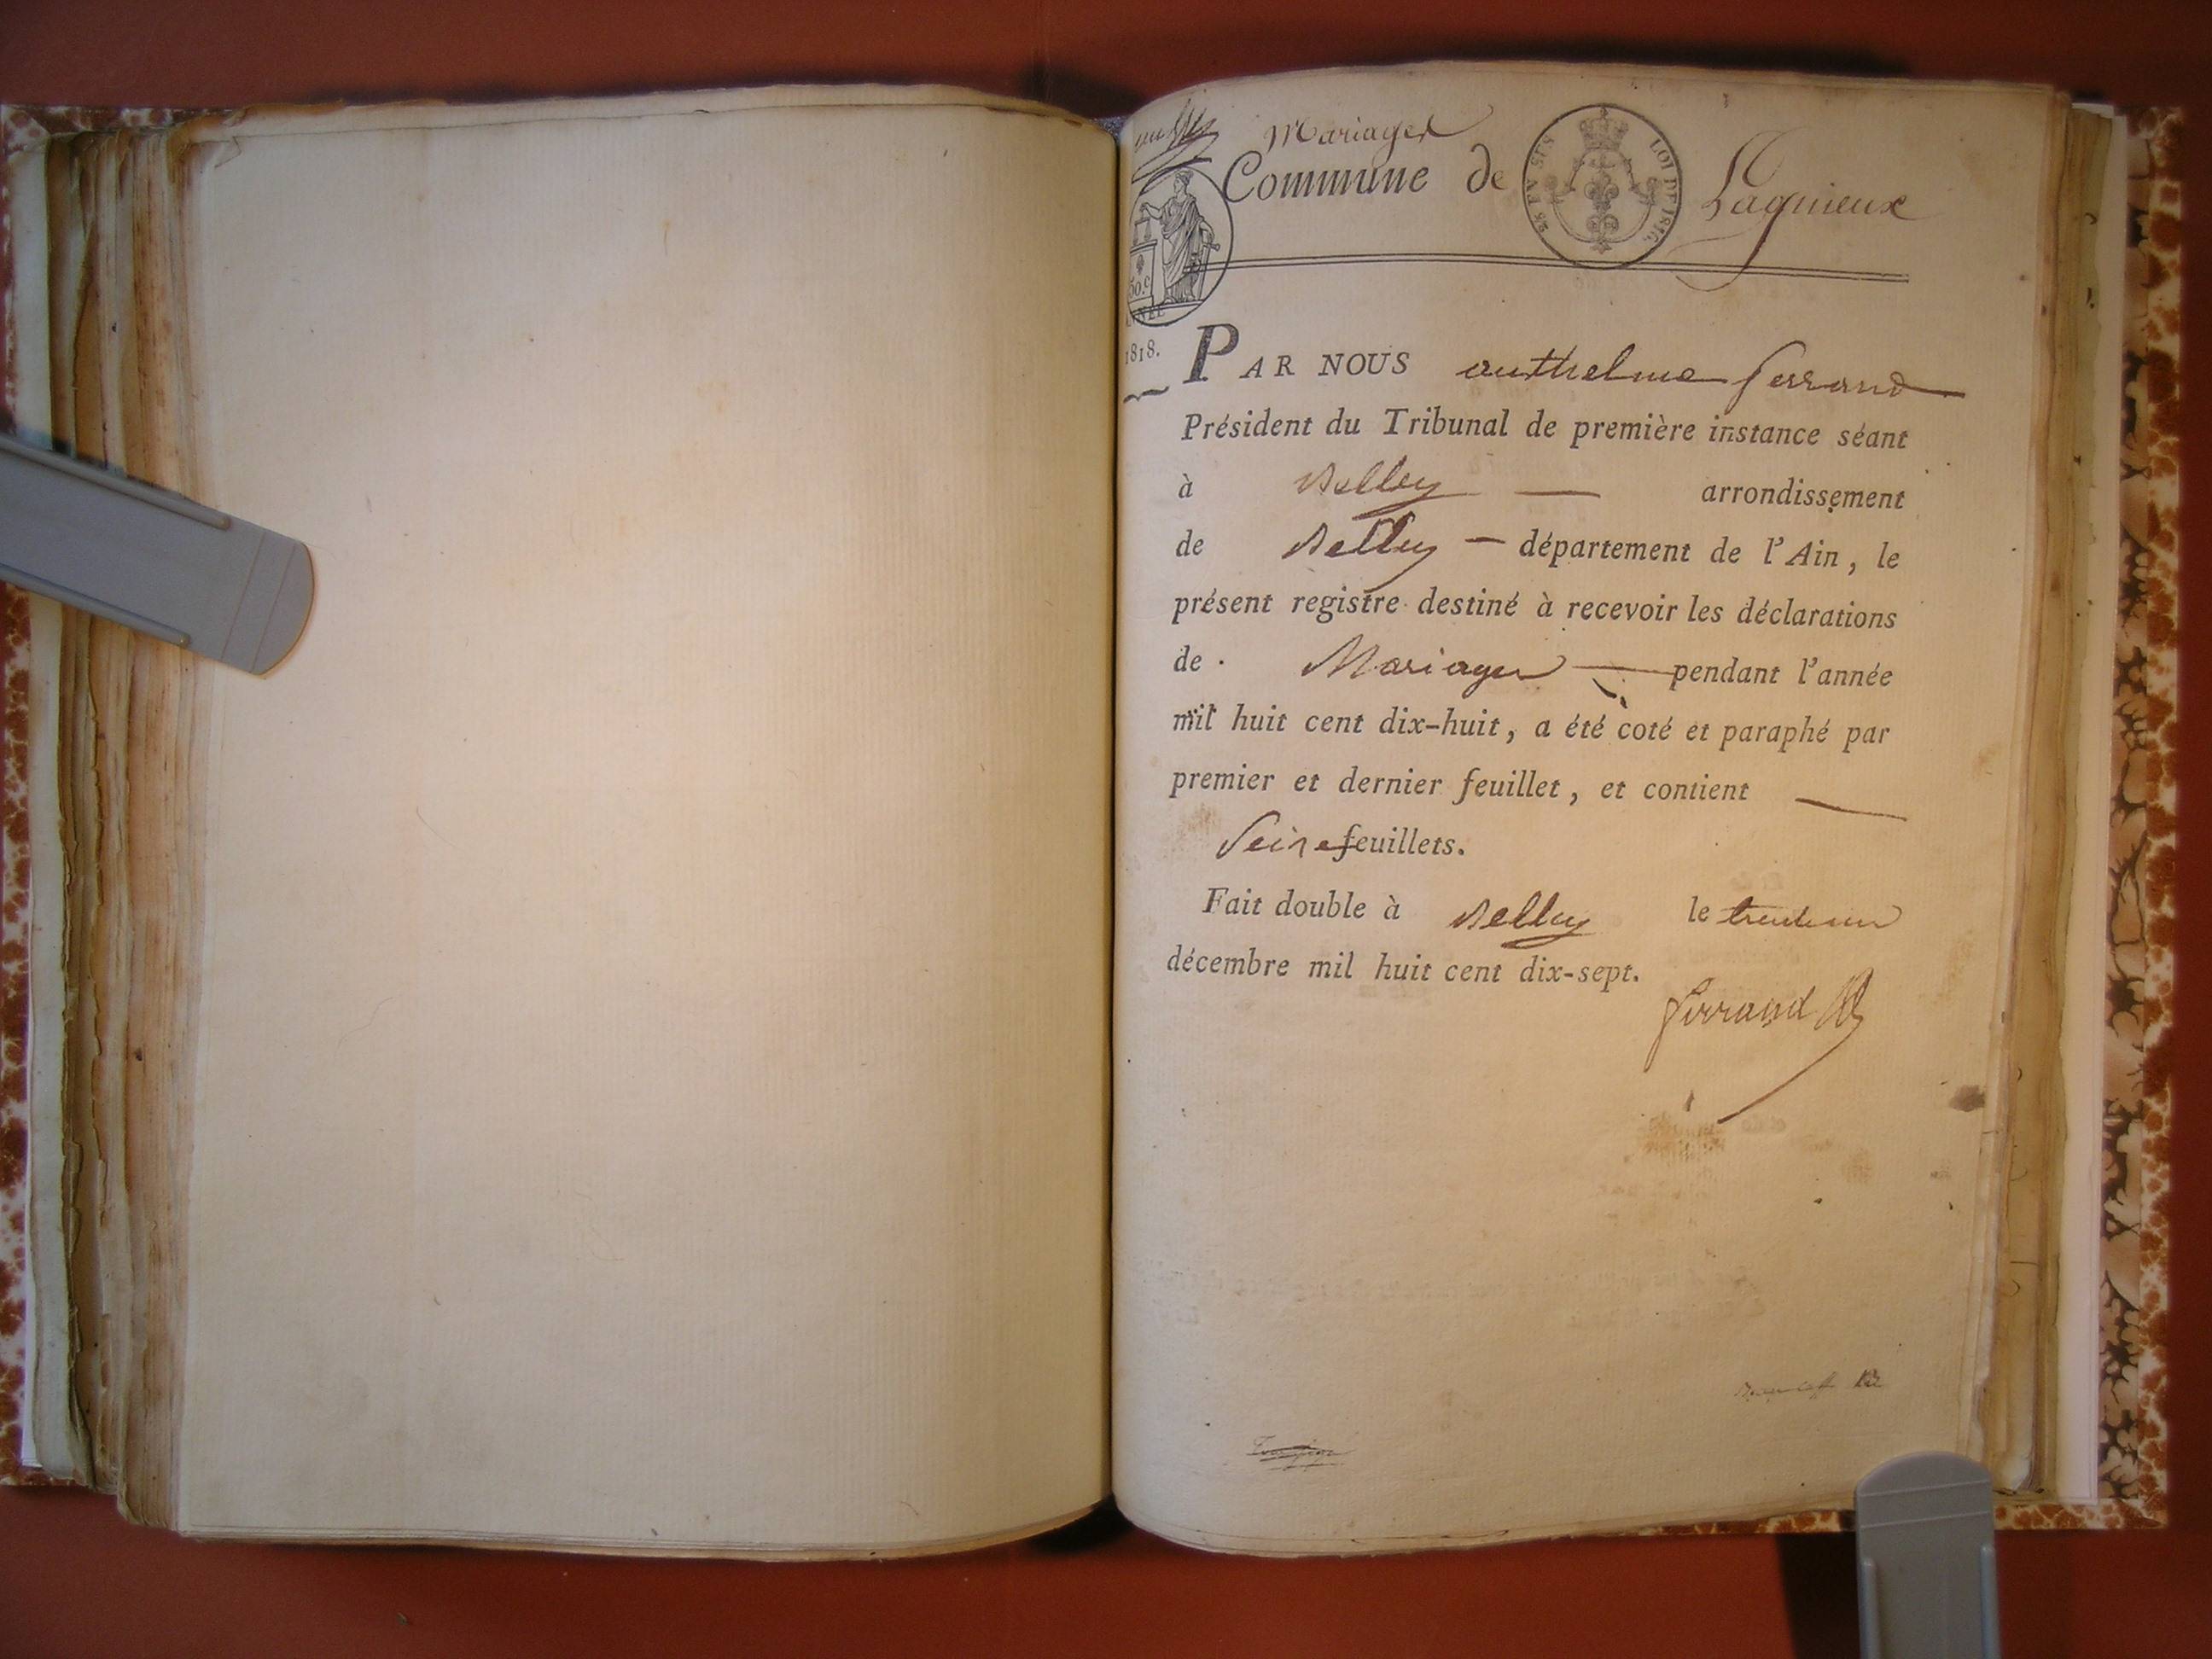 Mariages
Commune de Lagnieux
LOI DE 1816.
50.c
ANNÉE
1818.
PAR NOUS anthelme ferrand
Président du Tribunal de première instance séant
à Belley — arrondissement
de Belley — département de l'Ain, le
présent registre destiné à recevoir les déclarations
de Mariages — pendant l'année
mil huit cent dix-huit, a été coté et paraphé par
premier et dernier feuillet, et contient —
Seize feuillets.
Fait double à Belley le trente un
décembre mil huit cent dix-sept.
ferrand